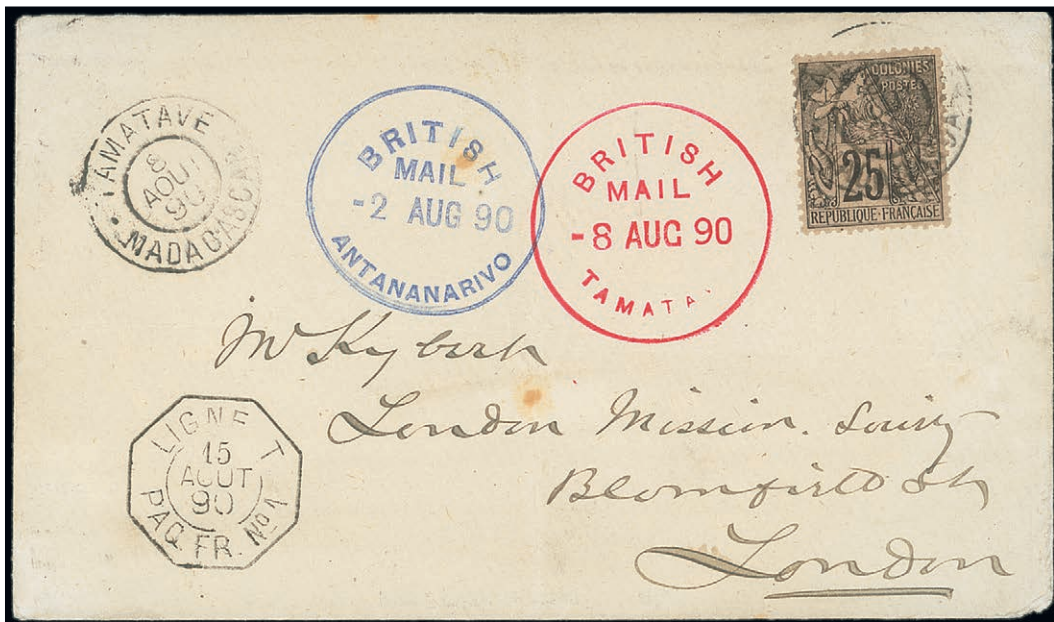 TAMATAVE
8
AOUT
90
MADAGASCAR
BRITISH
MAIL
-2 AUG 90
ANTANANARIVO
BRITISH
MAIL
-8 AUG 90
TAMATA
COLONIES
POSTES
25
REPUBLIQUE FRANÇAISE
Mr
London Mission. Society
Blomfield St
London
LIGNE T
15
AOUT
90
PAQ. FR. No 1